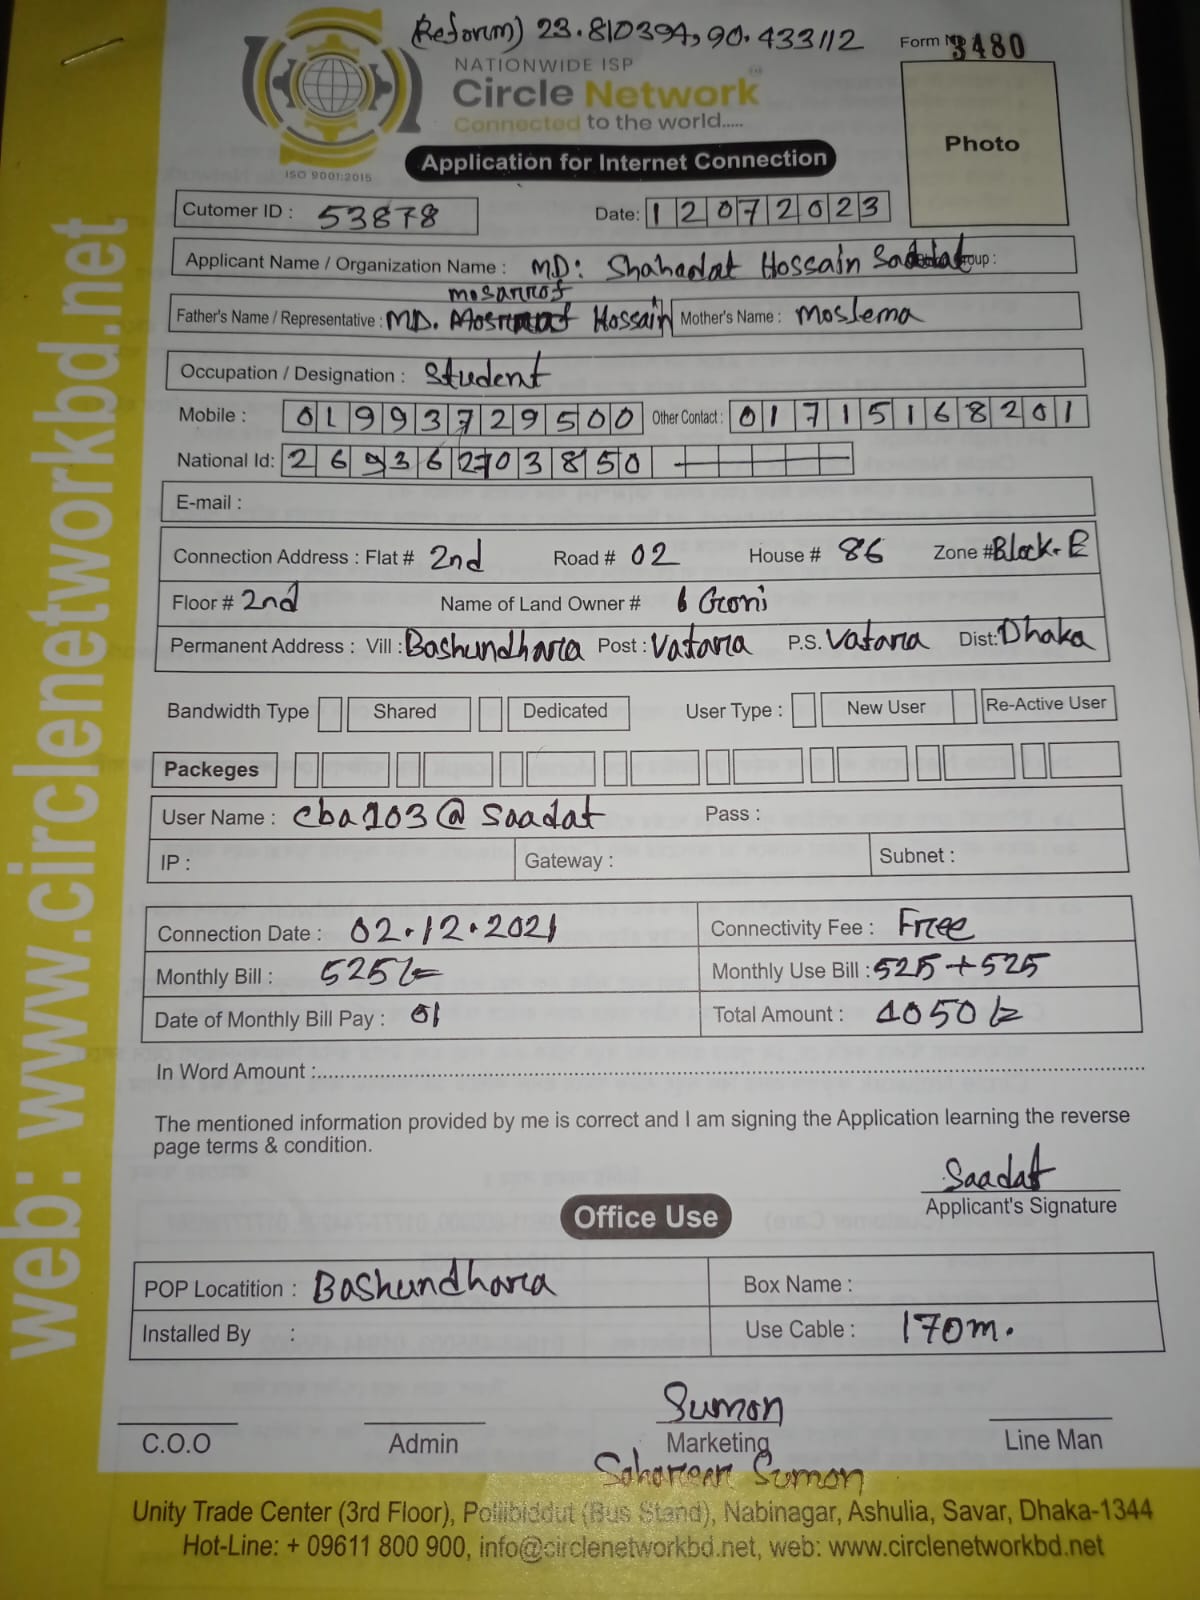 (Reform) 23.810394, 90.433112
Form No 3480
NATIONWIDE ISP
Circle Network™
Connected to the world.....
ISO 9001:2015
Application for Internet Connection
Photo
Cutomer ID : 53878
Date: 12072023
Applicant Name / Organization Name : MD: Shahadat Hossain Saadat
mosarrof
Father's Name / Representative : MD. Hossain Mother's Name : Moslema
Occupation / Designation : Student
Mobile : 01993729500 Other Contact : 01715168201
National Id: 2693627038 50
E-mail :
Connection Address : Flat # 2nd Road # 02 House # 86 Zone # Block-E
Floor # 2nd Name of Land Owner # Goni
Permanent Address : Vill : Bashundhara Post : Vatara P.S. Vatara Dist: Dhaka
Bandwidth Type Shared Dedicated User Type : New User Re-Active User
Packeges
User Name : cba103@saadat Pass :
IP : Gateway : Subnet :
Connection Date : 02.12.2021 Connectivity Fee : Free
Monthly Bill : 525/= Monthly Use Bill : 525+525
Date of Monthly Bill Pay : 01 Total Amount : 1050/=
In Word Amount :
The mentioned information provided by me is correct and I am signing the Application learning the reverse
page terms & condition.
Saadat
Applicant's Signature
Office Use
POP Locatition : Bashundhara Box Name :
Installed By : Use Cable : 170m.
Sumon
C.O.O Admin Marketing Line Man
Sumon
Unity Trade Center (3rd Floor), Pollibiddut (Bus Stand), Nabinagar, Ashulia, Savar, Dhaka-1344
Hot-Line: + 09611 800 900, info@circlenetworkbd.net, web: www.circlenetworkbd.net
web: www.circlenetworkbd.net